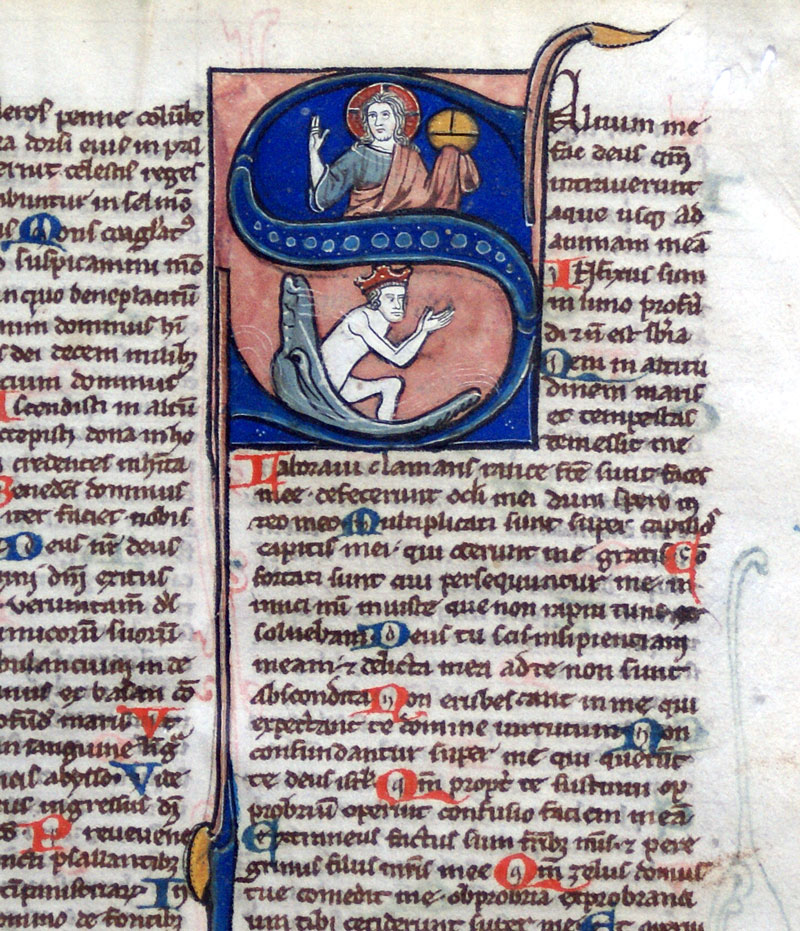 leros penne columbe
ra dorsi eius in pal
ernit celestis reges
abuntur in selmō
us Mons coagłatꝰ
o suspicamini mō
in quo beneplacitū
dominus hī
s dei decem milibꝫ
cium dominus
scendisti in altū
ccepisti dona in ho
credentes inhīta
Benedc̄s dominus
iter faciet nobis
Deus nr̄ deus
dn̄i exitus
verumtam̄ ds̄
nimicorū suorū
bulancium in de
minus ex basan cō
ofūd maris Vt
in sanguine
abysso Vide
us ingressus dī
Preuenere
ncti psallantibꝫ
In
omino de fontibꝫ
Saluum me
fac deus qm̄
intrauerunt
aque usqꝫ ad
animam meā
Infixus sum
in limo profū
di ⁊ ñ est sb̄ia
Veni in altitu
dinem maris
et tempestas
demersit me
Laboraui clamans rauce fc̄e sunt fauces
mee defecerunt oculi mei dum spero in
deo meo Multiplicati sunt super capillos
capitis mei qui oderunt me gratis Cō
fortati sunt qui persequuntur me in
imici mī iniuste que non rapui tunc ex
soluebam Deus tu scis insipienciam
meam ⁊ delicta mea a te non sunt
abscondita Non erubescant in me qui
expectant te domine uirtutum Non
confundantur super me qui querūt
te deus isrł Qm̄ propt̄ te sustinui op
probriū operuit confusio faciem meā
Extraneus factus sum fratribꝫ mīs ⁊ pere
grinus filiis mr̄is mee Qm̄ zelus domus
tue comedit me obprobria exprobranci
um tibi ceciderunt super me Et operui